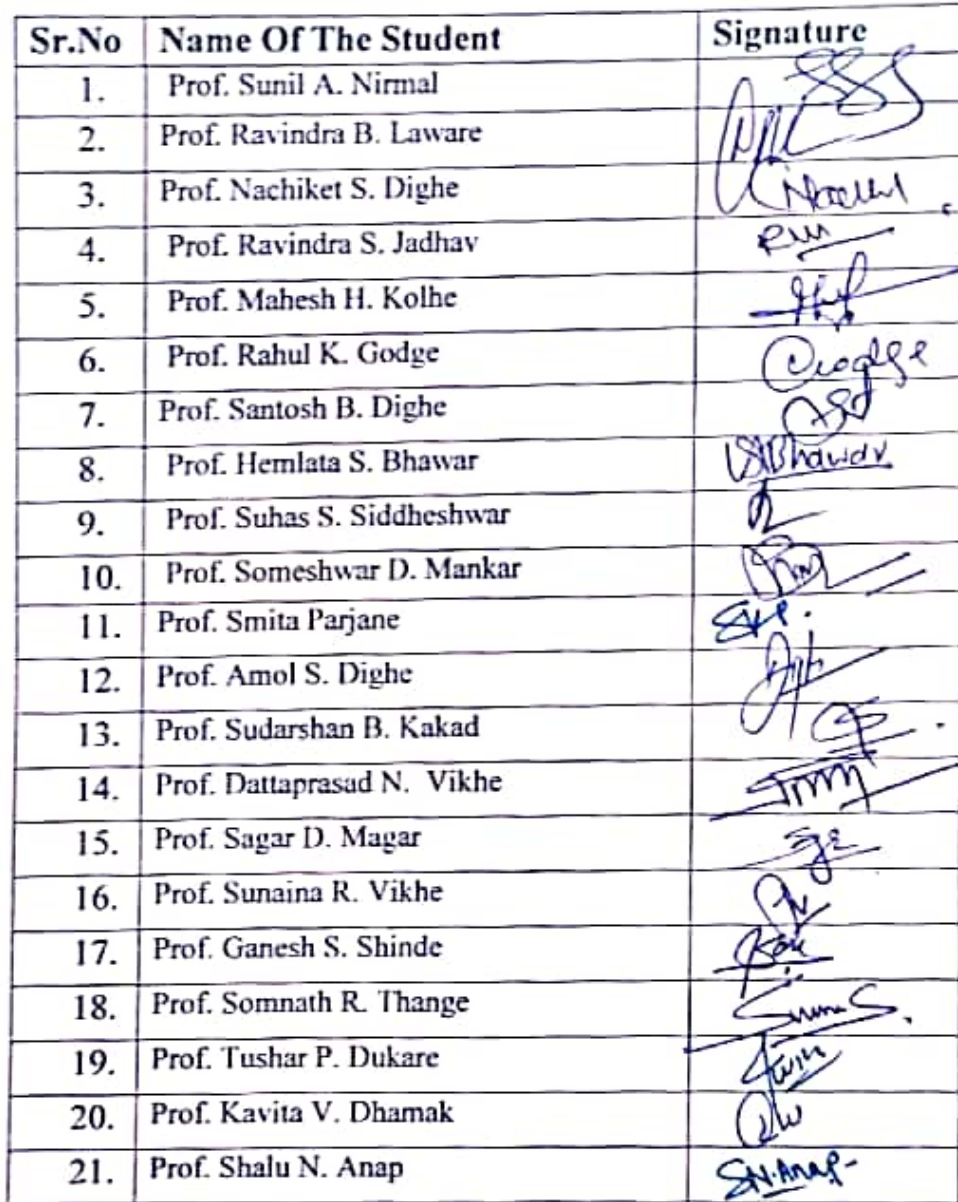 Sr.No Name Of The Student Signature
1. Prof. Sunil A. Nirmal
2. Prof. Ravindra B. Laware
3. Prof. Nachiket S. Dighe
4. Prof. Ravindra S. Jadhav
5. Prof. Mahesh H. Kolhe
6. Prof. Rahul K. Godge
7. Prof. Santosh B. Dighe
8. Prof. Hemlata S. Bhawar Bhawar
9. Prof. Suhas S. Siddheshwar
10. Prof. Someshwar D. Mankar
11. Prof. Smita Parjane
12. Prof. Amol S. Dighe
13. Prof. Sudarshan B. Kakad
14. Prof. Dattaprasad N. Vikhe
15. Prof. Sagar D. Magar
16. Prof. Sunaina R. Vikhe
17. Prof. Ganesh S. Shinde
18. Prof. Somnath R. Thange
19. Prof. Tushar P. Dukare
20. Prof. Kavita V. Dhamak
21. Prof. Shalu N. Anap S.N.Anap